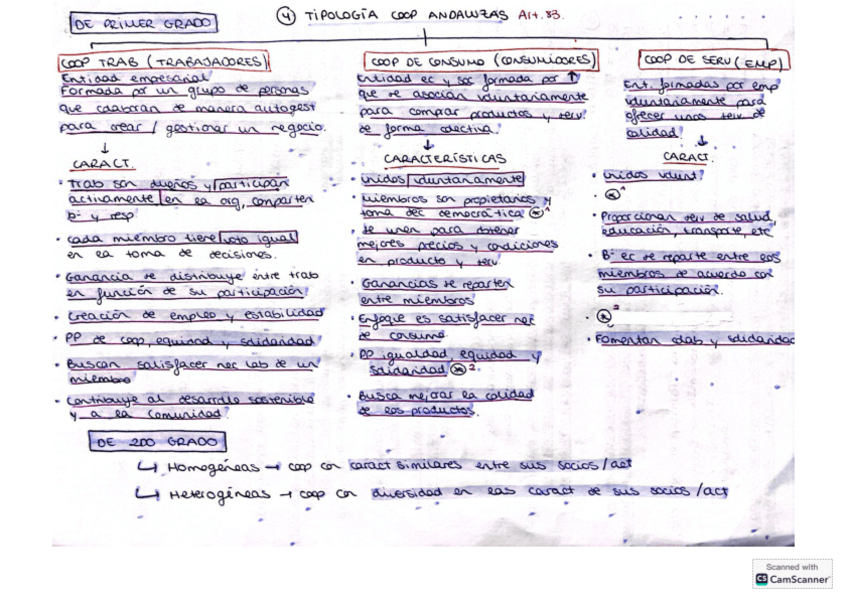 DE PRIMER GRADO
④ TIPOLOGÍA COOP ANDALUZAS Art. 83.
COOP TRAB (TRABAJADORES)
Entidad empresarial
Formada por un grupo de personas
que colaboran de manera autogest
para crear / gestionar un negocio.
↓
CARACT.
• Trab son dueños y participan
activamente en la org, comparten
bº y resp
• cada miembro tiene voto igual
en la toma de decisiones.
• Ganancia se distribuye entre trab
en función de su participación
• Creación de empleo y estabilidad
• PP de coop, equidad y solidaridad
• Buscan satisfacer nec lab de un
miembro
• Contribuye al desarrollo sostenible
y a la comunidad
COOP DE CONSUMO (CONSUMIDORES)
Entidad ec y soc formada por ↑
que se asocian voluntariamente
para comprar productos y serv.
de forma colectiva
↓
CARACTERÍSTICAS
• unidos voluntariamente
• miembros son propietarios y
toma dec democrática ⊛¹
• se unen para obtener
mejores precios y condiciones
en producto y serv
• Ganancias se reparten
entre miembros
• Enfoque es satisfacer nec
de consumo
• PP igualdad, equidad y
solidaridad ⊛²
• Busca mejorar la calidad
de los productos.
COOP DE SERV (EMP)
Ent. formadas por emp
voluntariamente para
ofrecer unos serv de
calidad
↓
CARACT.
• unidos volunt.
• ⊛¹
• Proporcionan serv de salud,
educación, transporte, etc
• Bº ec se reparte entre los
miembros de acuerdo con
su participación.
• ⊛²
• Fomentan colab y solidaridad
DE 2DO GRADO
↳ Homogéneas → coop con caract similares entre sus socios/act
↳ Heterogéneas → coop con diversidad en las caract de sus socios/act
Scanned with
CS CamScanner